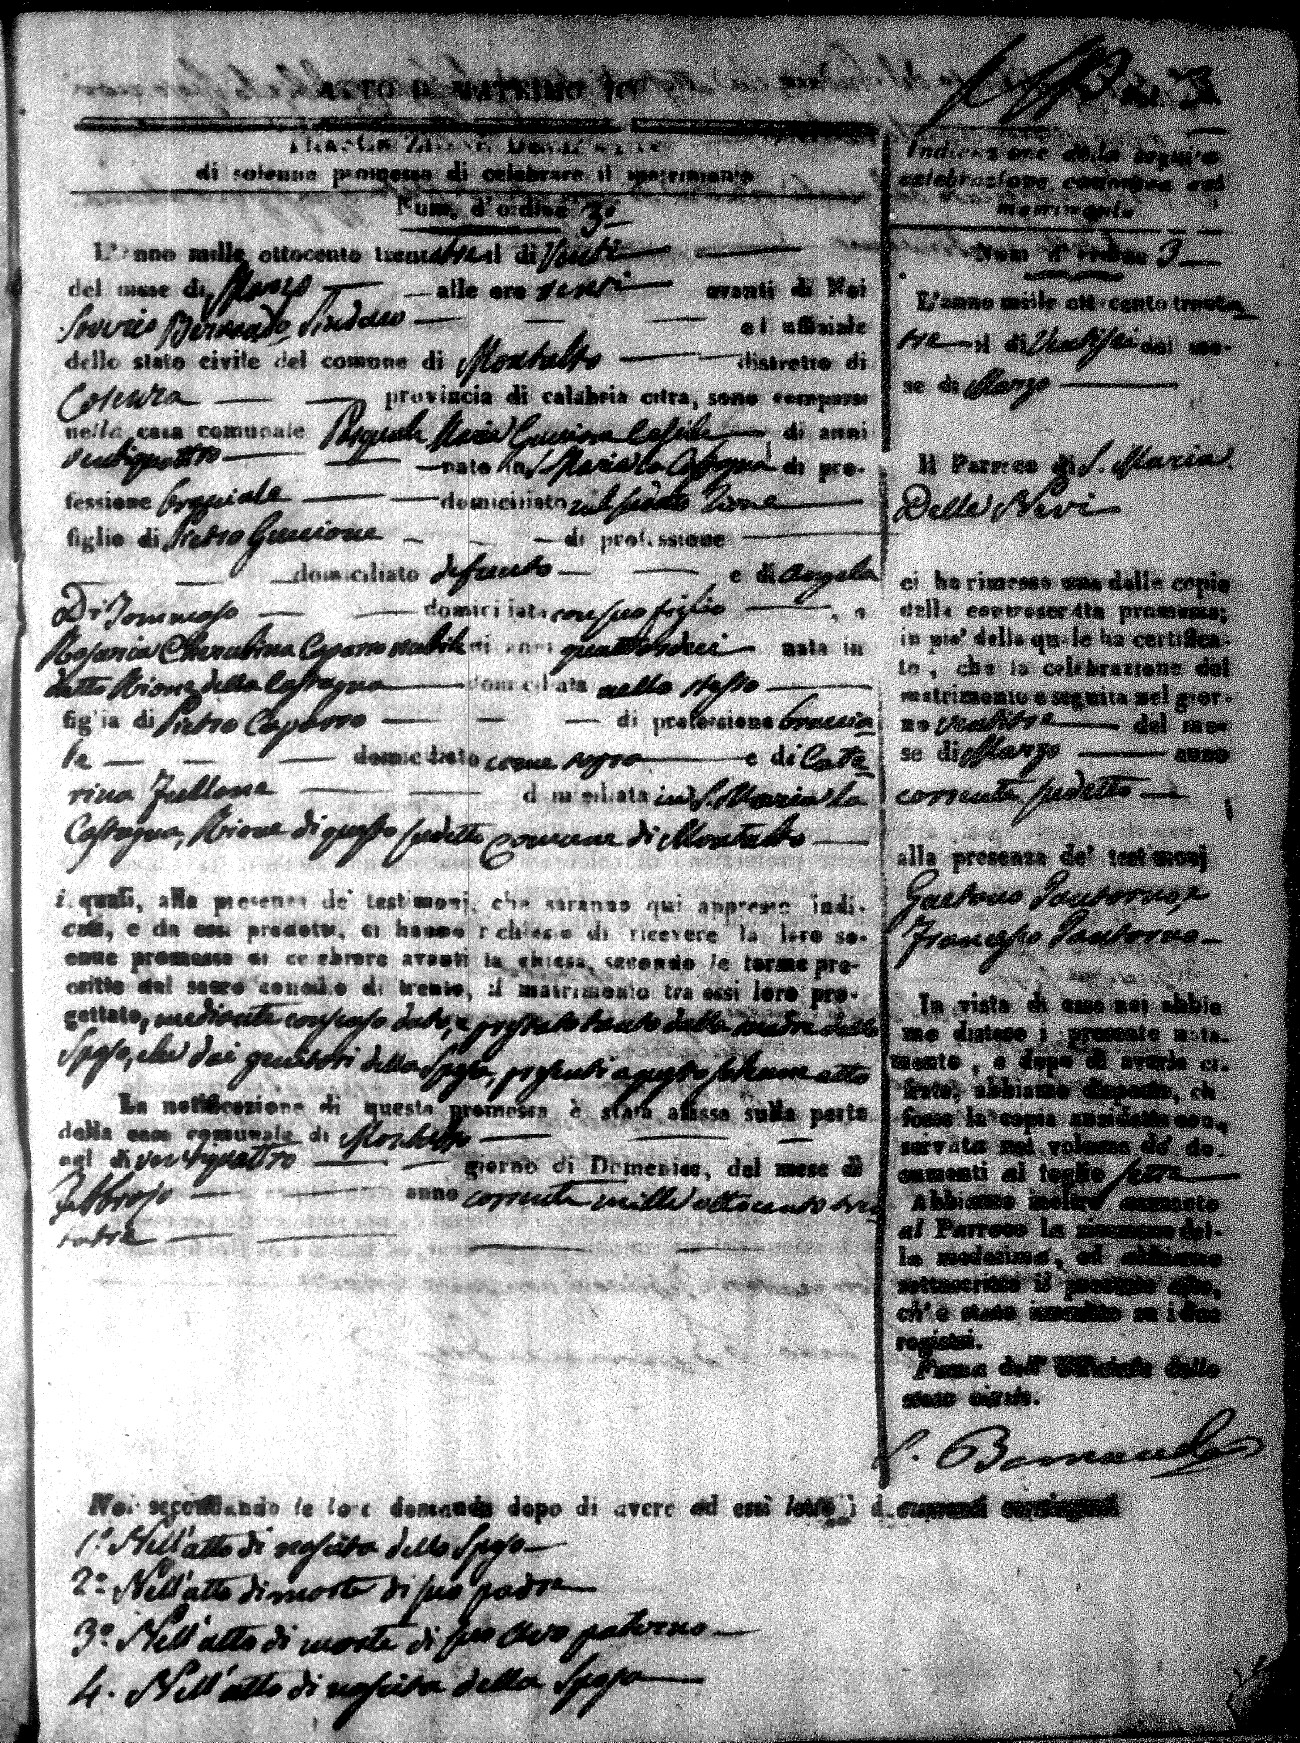 di solenne promessa di celebrare il matrimonio
Num. d'ordine 3.º
L'anno mille ottocento trentatre il dì Venti
del mese di Marzo alle ore avanti di Noi
Saverio Bernaudo Sindaco ed uffiziale
dello stato civile del comune di Montalto distretto di
Cosenza provincia di calabria citra, sono comparsi
nella casa comunale Pasquale Maria Guccione di anni
ventiquattro nato in S. Maria la Castagna di pro-
fessione bracciale domiciliato nel Rione
figlio di Pietro Guccione di professione
domiciliato defunto e di Angela
Di Tommaso domiciliata con suo figlio , e
Rosaria Cherubina Caparro nubile di anni quattordeci nata in
detto Rione della Castagna domiciliata nello stesso
figlia di Pietro Caparro di professione braccia
le domiciliato come sopra e di Cate
rina domiciliata in S. Maria la
Castagna, Rione di questo sudetto Comune di Montalto
i quali, alla presenza de' testimonj, che saranno qui appresso indi-
cati, e da essi prodotti, ci hanno richiesto di ricevere la loro so-
enne promessa di celebrare avanti la chiesa, secondo le forme pre-
critte dal sacro concilio di trento, il matrimonio tra essi loro pro-
gettato, mediante consenso dato, e prestato tanto dalla madre dello
Sposo, che dai genitori della Sposa, presenti a questo solenne atto
La notificazione di questa promessa è stata affissa sulla porta
della casa comunale di Montalto
nel dì ventiquattro giorno di Domenica, del mese di
Febbrajo anno corrente mille ottocento tren
tatre
Noi secondando le loro domande dopo di avere ad essi letto i documenti consistenti
1.º Nell'atto di nascita dello Sposo
2.º Nell'atto di morte di suo padre
3.º Nell'atto di morte di suo avo paterno
4. Nell'atto di nascita della Sposa
Indicazione della seguita
celebrazione canonica del
matrimonio
Num. d'ordine 3
L'anno mille ottocento trenta
tre il dì Ventisei del me-
se di Marzo
Il Parroco di S. Maria
Delle Nevi
ci ha rimesso una delle copie
della controscritta promessa;
in piè della quale ha certifica-
to, che la celebrazione del
matrimonio è seguita nel gior-
no ventitre del me-
se di Marzo anno
corrente sudetto
alla presenza de' testimonj
Gaetano Santoruo, e
Francesco Santoruo
In vista di esso noi abbia
mo disteso il presente nota-
mento, e dopo di averlo ci-
frato, abbiamo disposto, ch
fosse la copia anzidetta con-
servata nel volume de' do-
cumenti al foglio
Abbiamo inoltre accusato
al Parroco la ricezione del-
la medesima, ed abbiamo
sottoscritto il presente atto,
ch'è stato inscritto su i due
registri.
Firma dell' Uffiziale dello
stato civile.
S. Bernaudo